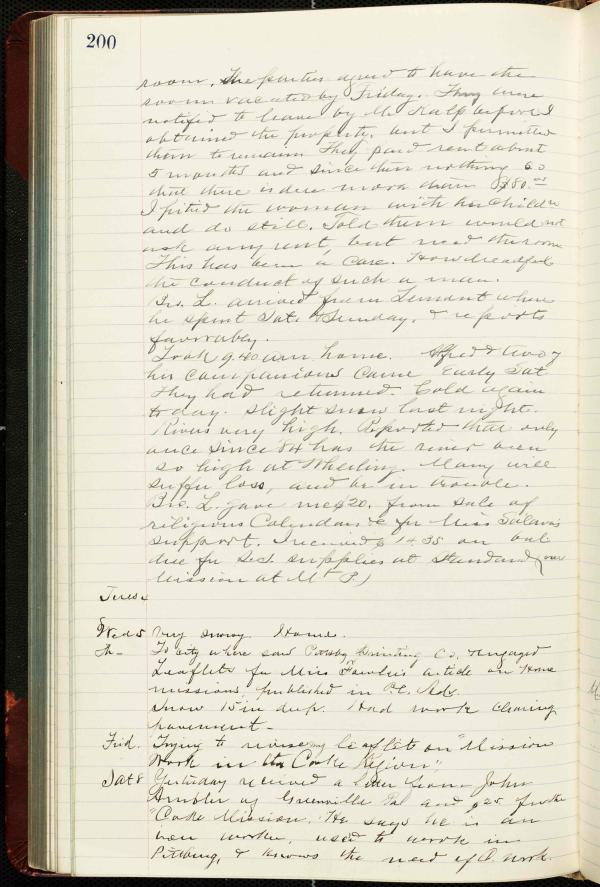 200
room. The parties agreed to have the
room vacated by Friday. They were
notified to leave by Mr. before I
obtained the property, but I permitted
them to remain. They paid rent about
5 months and since then nothing so
that there is due more than $80.00
I pitied the woman with her children
and do still. Told them would not
ask any rent, but need the room
This has been a care. How dreadful
the conduct of such a man.
Bro. L. arrived from Lemont where
he spent Sat. & Sunday. & reports
favorably.
Took 9.40 am home. Alfred & two of
his companions came early Sat
They had returned. Cold again
to day. Slight snow last night.
Rivers very high. Reported that only
once since 84 has the river been
so high at Wheeling. Many will
suffer loss, and be in trouble.
Bro. L. gave me $20. from sale of
religious Calendars &c for Miss
support. I received $14.35 on bal
due for Sect. supplies at Standard (our
Mission at Mt P.)
Tues 4
Wed 5 Very snowy. Home.
Th- To city where saw Printing Co. Engaged
Leaflets for Miss Fowler's article on Home
missions, published in P.C. Adv.
Snow 15 in deep. Hard work cleaning
pavement-
Frid. Trying to revise my leaflets on "Mission
Work in the Coke Region".
Sat 8 Yesterday received a letter from John
Ambler of Greenville Pa and $25 for the
"Coke Mission. He says he is an
iron worker, used to work in
Pittburg, & knows the need of C. work.